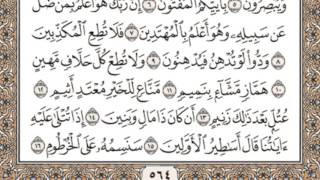 وَيُبْصِرُونَ ۝٥ بِأَييِّكُمُ الْمَفْتُونُ ۝٦ إِنَّ رَبَّكَ هُوَ أَعْلَمُ بِمَن ضَلَّ
عَن سَبِيلِهِ وَهُوَ أَعْلَمُ بِالْمُهْتَدِينَ ۝٧ فَلَا تُطِعِ الْمُكَذِّبِينَ
۝٨ وَدُّوا لَوْ تُدْهِنُ فَيُدْهِنُونَ ۝٩ وَلَا تُطِعْ كُلَّ حَلَّافٍ مَّهِينٍ
۝١٠ هَمَّازٍ مَّشَّاءٍ بِنَمِيمٍ ۝١١ مَّنَّاعٍ لِّلْخَيْرِ مُعْتَدٍ أَثِيمٍ ۝١٢
عُتُلٍّ بَعْدَ ذَٰلِكَ زَنِيمٍ ۝١٣ أَن كَانَ ذَا مَالٍ وَبَنِينَ ۝١٤ إِذَا تُتْلَىٰ عَلَيْهِ
ءَايَاتُنَا قَالَ أَسَاطِيرُ الْأَوَّلِينَ ۝١٥ سَنَسِمُهُ عَلَى الْخُرْطُومِ ۝١٦
٥٦٤